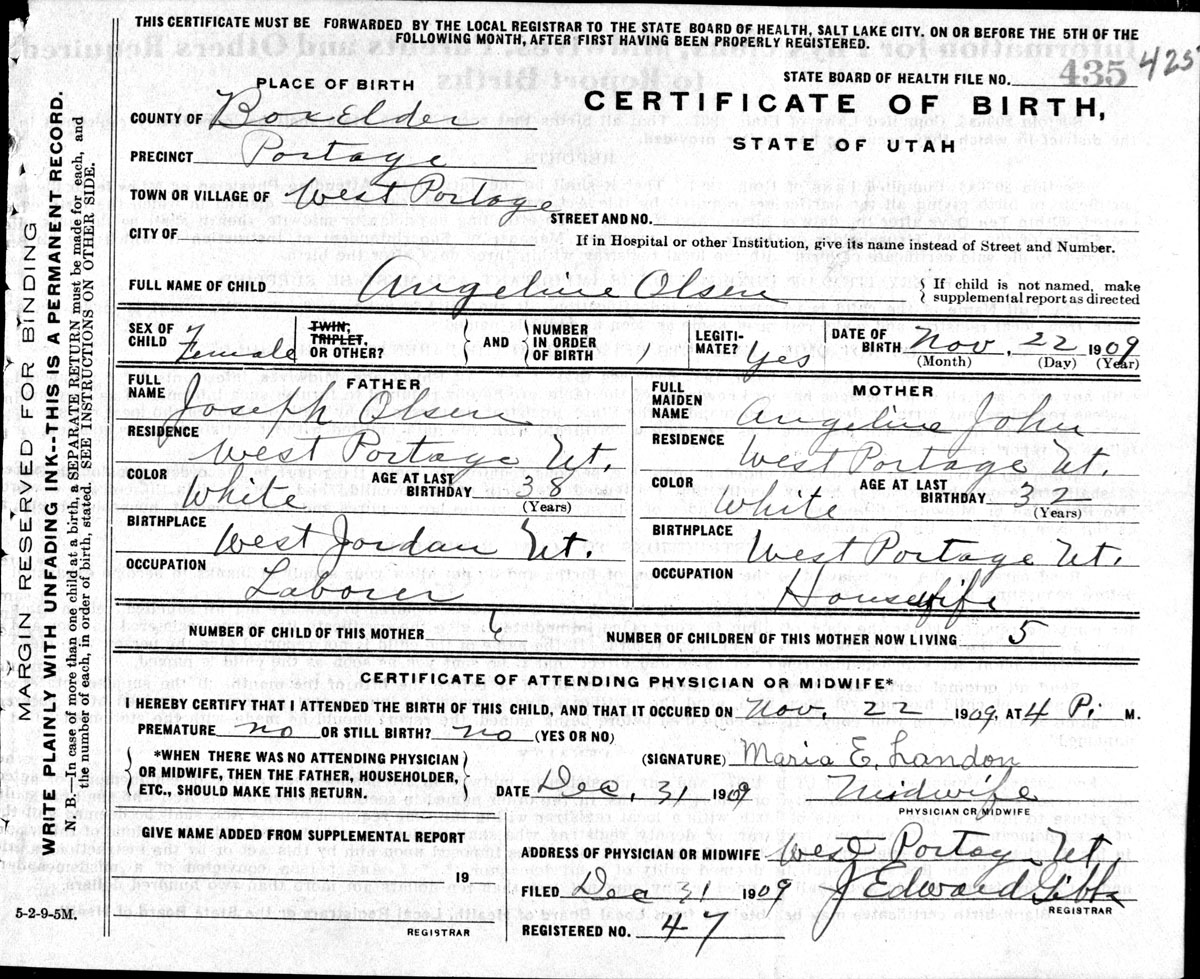 THIS CERTIFICATE MUST BE FORWARDED BY THE LOCAL REGISTRAR TO THE STATE BOARD OF HEALTH, SALT LAKE CITY. ON OR BEFORE THE 5TH OF THE
FOLLOWING MONTH, AFTER FIRST HAVING BEEN PROPERLY REGISTERED.
425
STATE BOARD OF HEALTH FILE NO. 435
PLACE OF BIRTH
CERTIFICATE OF BIRTH,
STATE OF UTAH
COUNTY OF Box Elder
PRECINCT Portage
TOWN OR VILLAGE OF West Portage
STREET AND NO.
CITY OF
If in Hospital or other Institution, give its name instead of Street and Number.
FULL NAME OF CHILD Angeline Olsen
If child is not named, make
supplemental report as directed
SEX OF CHILD Female
TWIN, TRIPLET, OR OTHER?
AND
NUMBER IN ORDER OF BIRTH
LEGITIMATE? Yes
DATE OF BIRTH Nov, 22 1909
(Month) (Day) (Year)
FATHER
FULL NAME Joseph Olsen
RESIDENCE West Portage Ut.
COLOR White
AGE AT LAST BIRTHDAY 38
(Years)
BIRTHPLACE West Jordan Ut.
OCCUPATION Laborer
MOTHER
FULL MAIDEN NAME Angeline John
RESIDENCE West Portage Ut.
COLOR White
AGE AT LAST BIRTHDAY
(Years)
BIRTHPLACE West Portage Ut.
OCCUPATION Housewife
NUMBER OF CHILD OF THIS MOTHER 6
NUMBER OF CHILDREN OF THIS MOTHER NOW LIVING 5
CERTIFICATE OF ATTENDING PHYSICIAN OR MIDWIFE*
I HEREBY CERTIFY THAT I ATTENDED THE BIRTH OF THIS CHILD, AND THAT IT OCCURRED ON Nov. 22 1909, AT 4 P. M.
PREMATURE no OR STILL BIRTH? no (YES OR NO)
*WHEN THERE WAS NO ATTENDING PHYSICIAN
OR MIDWIFE, THEN THE FATHER, HOUSEHOLDER,
ETC., SHOULD MAKE THIS RETURN.
(SIGNATURE) Maria E. Landon
DATE Dec, 31 1909 Midwife
PHYSICIAN OR MIDWIFE
GIVE NAME ADDED FROM SUPPLEMENTAL REPORT
19
REGISTRAR
ADDRESS OF PHYSICIAN OR MIDWIFE West Portage Ut.
FILED Dec 31 1909 J Edward Gibbs
REGISTRAR
REGISTERED NO. 47
5-2-9-5M.
MARGIN RESERVED FOR BINDING
WRITE PLAINLY WITH UNFADING INK--THIS IS A PERMANENT RECORD.
B.—In case of more than one child at a birth, a SEPARATE RETURN must be made for each, and
the number of each, in order of birth, stated. SEE INSTRUCTIONS ON OTHER SIDE.